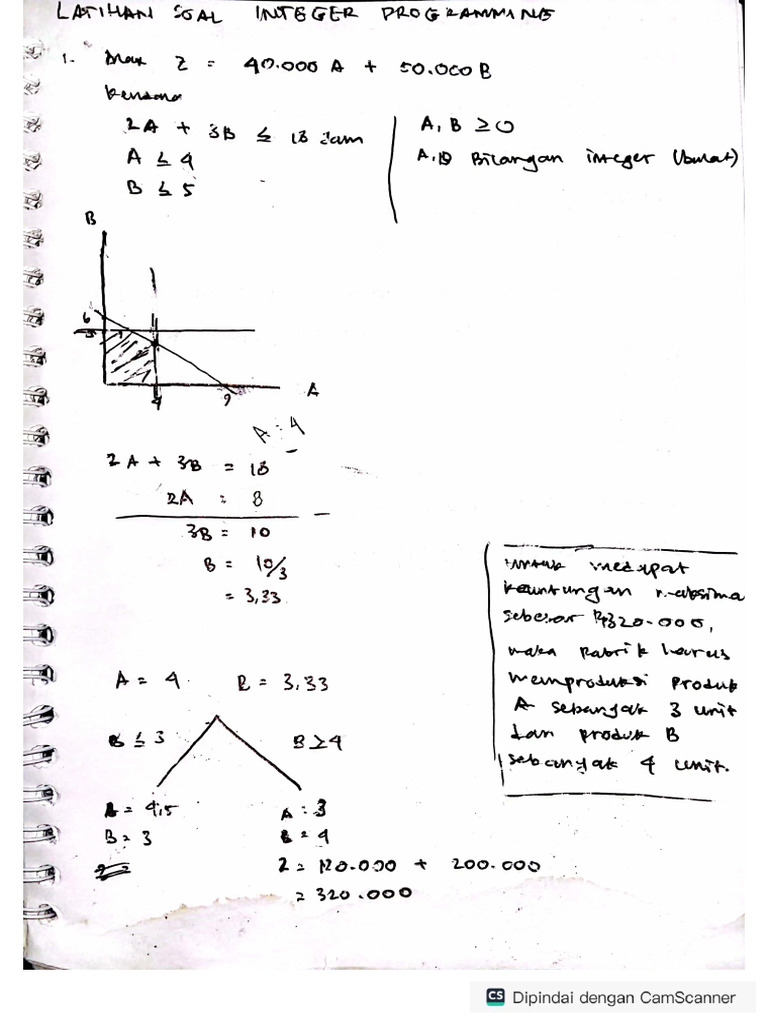 LATIHAN SOAL INTEGER PROGRAMMING
1. Max Z = 40.000 A + 50.000 B
kendala
2A + 3B ≤ 18 jam
A ≤ 4
B ≤ 5
A, B ≥ 0
A, B Bilangan integer (bulat)
B
6
5
4
9
A
A = 4
2A + 3B = 18
2A = 8
3B = 10
B = 10/3
= 3,33
A = 4 B = 3,33
B ≤ 3 B ≥ 4
A = 4,5
B = 3
A = 3
B = 4
Z = 120.000 + 200.000
= 320.000
untuk medapat
keuntungan maksima
sebesar Rp320.000,
maka pabrik harus
memproduksi produk
A sebanyak 3 unit
dan produk B
sebanyak 4 unit.
CS Dipindai dengan CamScanner